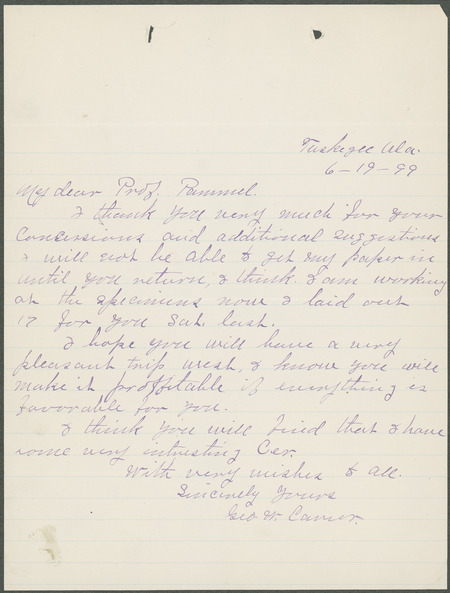 Tuskegee Ala.
6-19-99
My dear Prof. Pammel.
I thank you very much for your
concessions and additional suggestions
I will not be able to get my paper in
until you return, I think. I am working
at the specimens now I laid out
17 for you Sat. last.
I hope you will have a very
pleasant trip west, I know you will
make it proffitable if everything is
favorable for you.
I think you will find that I have
some very intresting Cer.
With very wishes to all.
Sincerely Yours
Geo W. Carver.